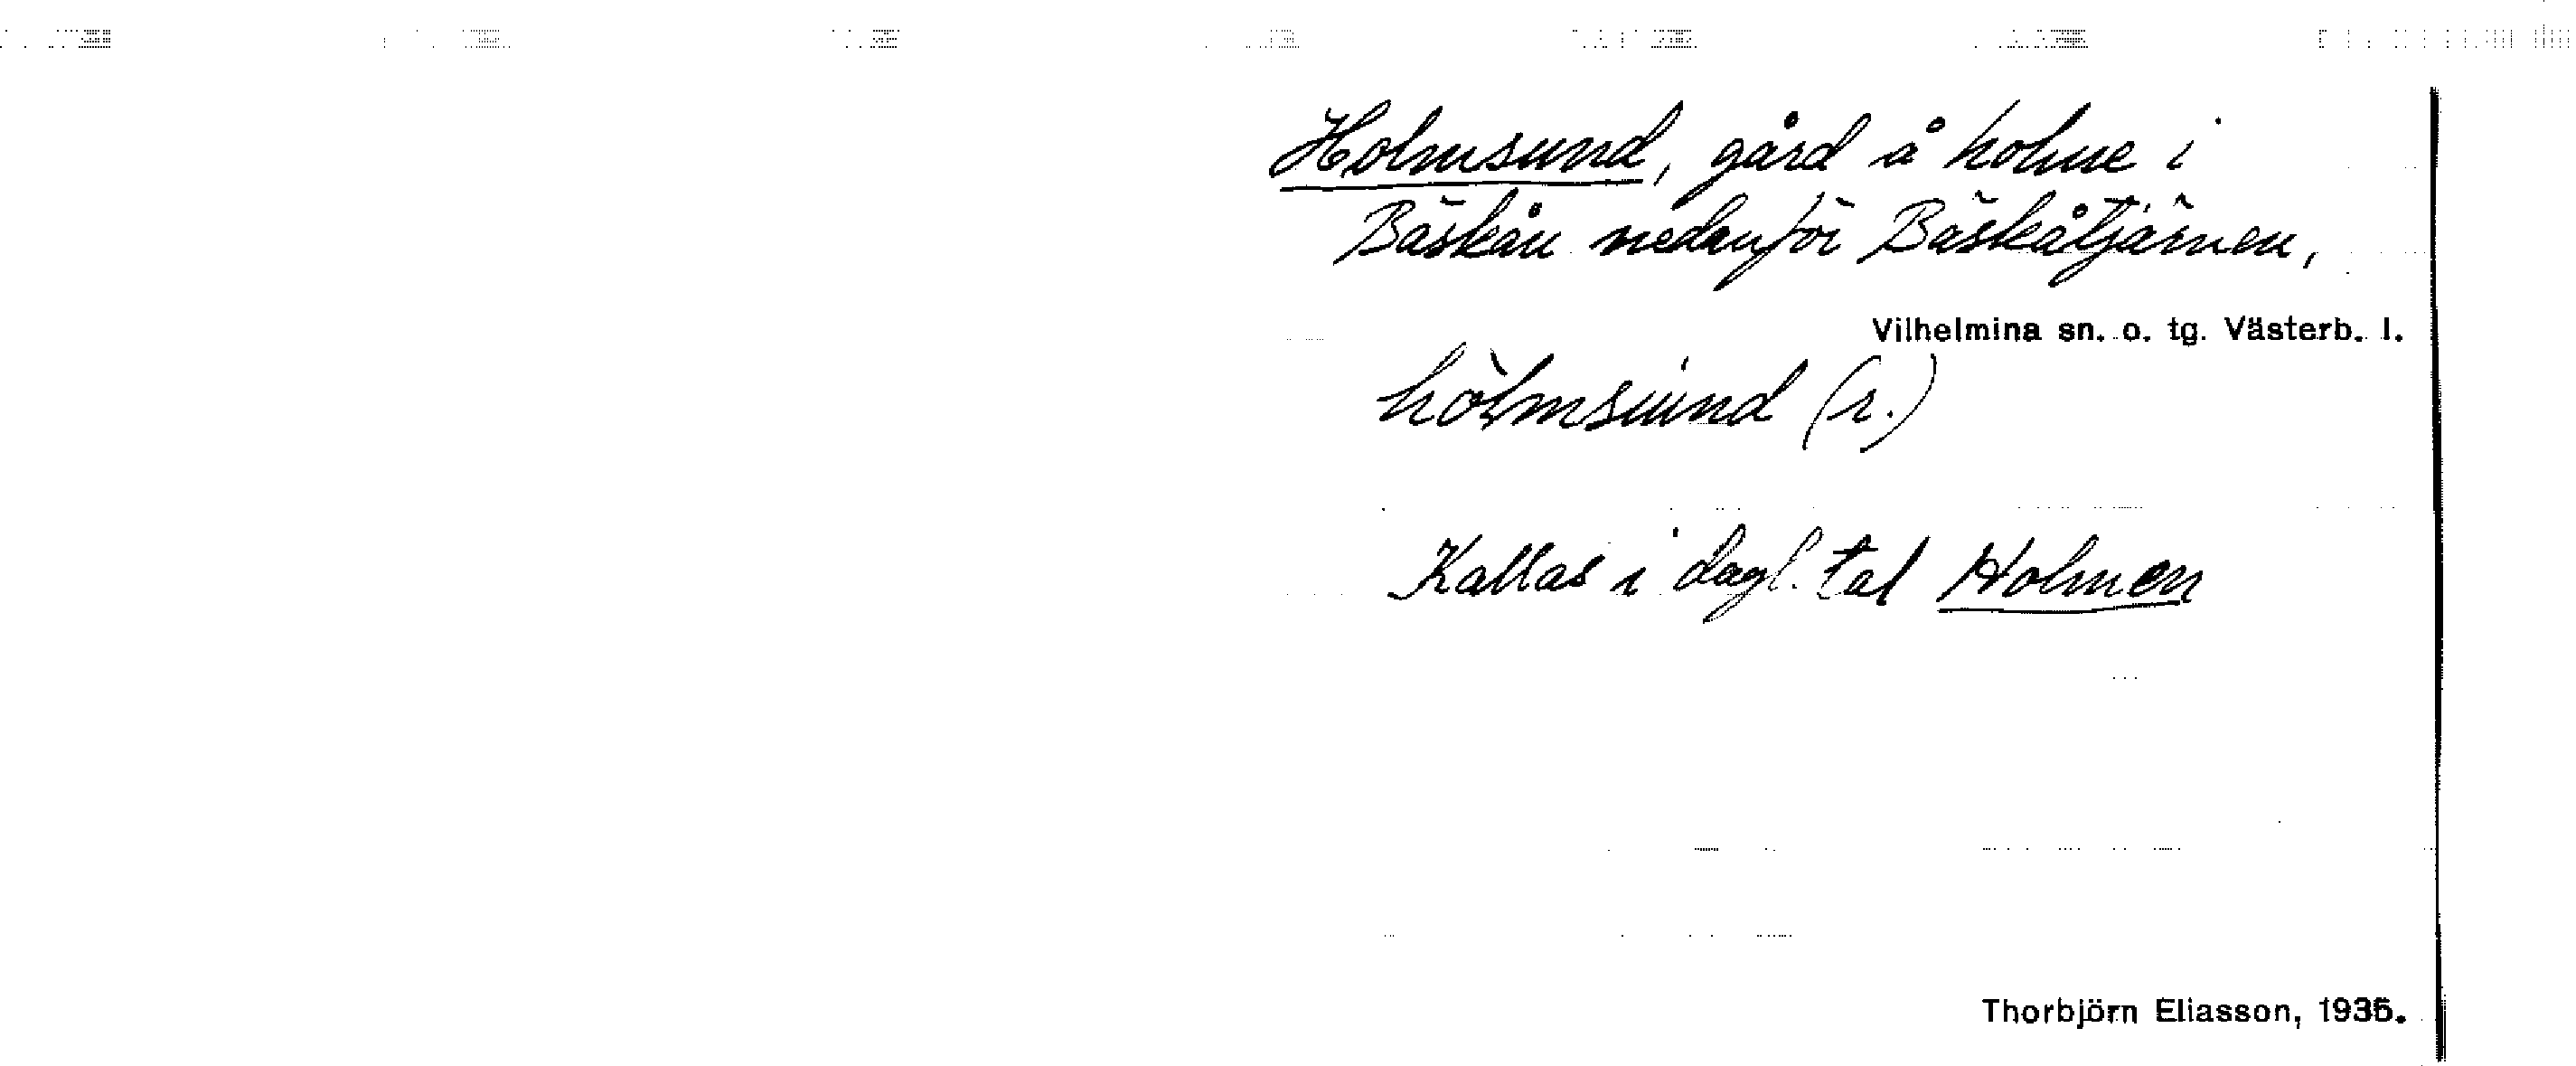 Holmsund, gård å holme i
Bäskån nedanför Bäskåtjärnen,
Vilhelmina sn. o. tg. Västerb. l.
hòlmsúnd (r.)
Kallas i dagl. tal Holmen
Thorbjörn Eliasson, 1935.